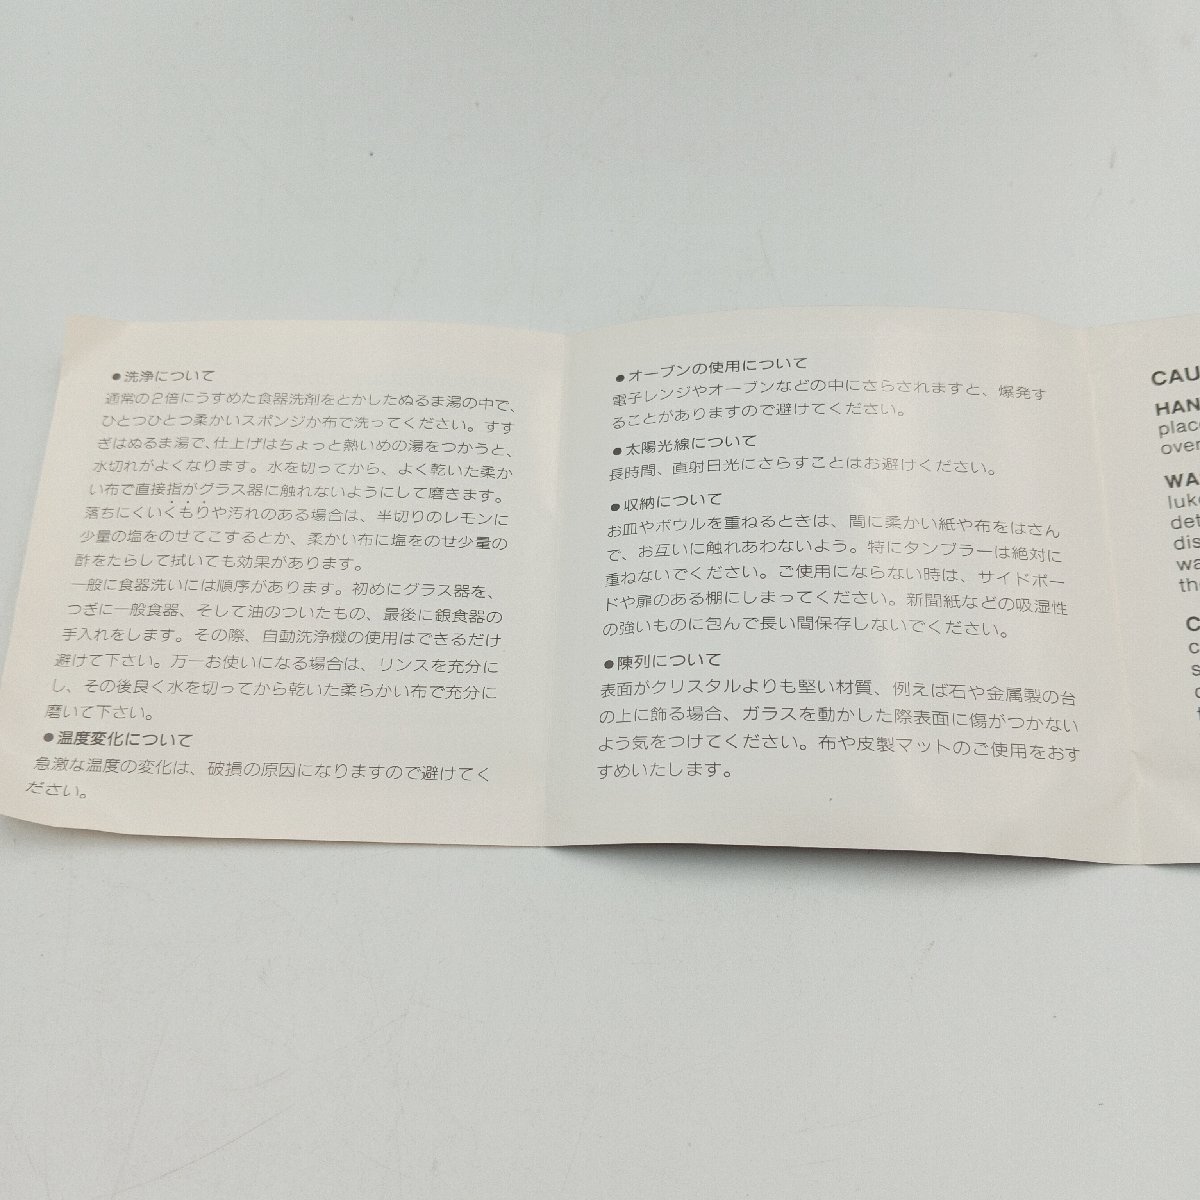 ●洗浄について
通常の2倍にうすめた食器洗剤をとかしたぬるま湯の中で、
ひとつひとつ柔かいスポンジか布で洗ってください。すす
ぎはぬるま湯で、仕上げはちょっと熱いめの湯をつかうと、
水切れがよくなります。水を切ってから、よく乾いた柔か
い布で直接指がグラス器に触れないようにして磨きます。
落ちにくいくもりや汚れのある場合は、半切りのレモンに
少量の塩をのせてこするとか、柔かい布に塩をのせ少量の
酢をたらして拭いても効果があります。
一般に食器洗いには順序があります。初めにグラス器を、
つぎに一般食器、そして油のついたもの、最後に銀食器の
手入れをします。その際、自動洗浄機の使用はできるだけ
避けて下さい。万一お使いになる場合は、リンスを充分に
し、その後良く水を切ってから乾いた柔らかい布で充分に
磨いて下さい。
●温度変化について
急激な温度の変化は、破損の原因になりますので避けてく
ださい。
●オーブンの使用について
電子レンジやオーブンなどの中にさらされますと、爆発す
ることがありますので避けてください。
●太陽光線について
長時間、直射日光にさらすことはお避けください。
●収納について
お皿やボウルを重ねるときは、間に柔かい紙や布をはさん
で、お互いに触れあわないよう。特にタンブラーは絶対に
重ねないでください。ご使用にならない時は、サイドボー
ドや扉のある棚にしまってください。新聞紙などの吸湿性
の強いものに包んで長い間保存しないでください。
●陳列について
表面がクリスタルよりも堅い材質、例えば石や金属製の台
の上に飾る場合、ガラスを動かした際表面に傷がつかない
よう気をつけてください。布や皮製マットのご使用をおす
すめいたします。
CAU
HAN
place
over
WA
luke
det
dis
wa
the
C
c
s